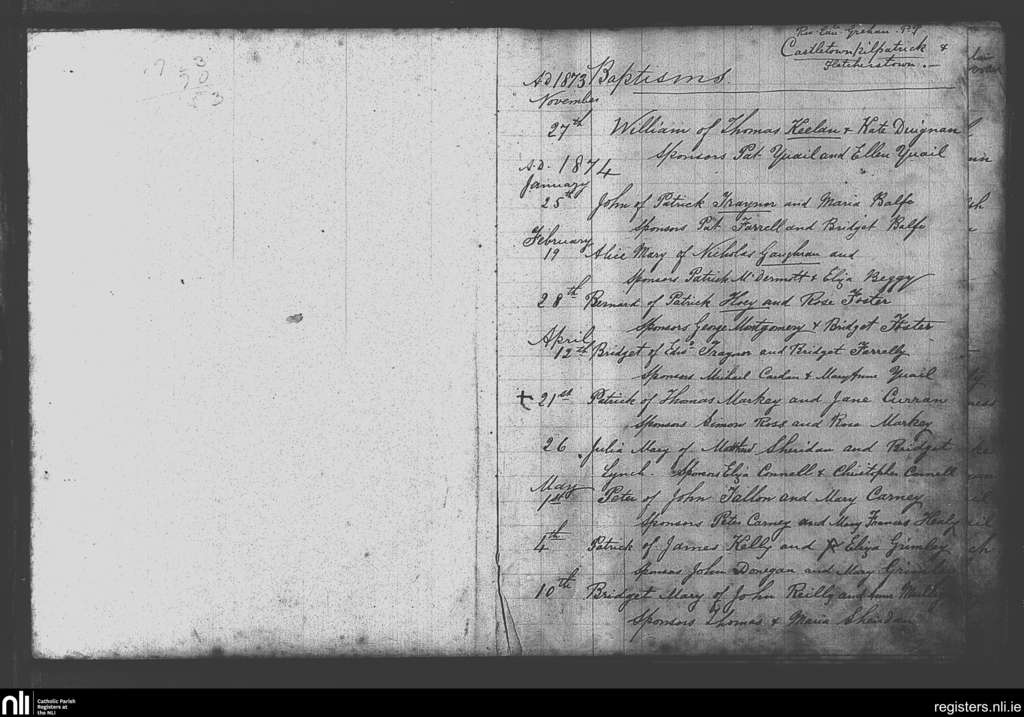 Castletownkilpatrick &
Fletcherstown.—
A.D. 1873 Baptisms
November
27th William of Thomas Keelan & Kate Duignan
Sponsors Pat Quail and Ellen Quail
A.D. 1874
January
25th John of Patrick Traynor and Maria Balfe
Sponsors Pat Farrell and Bridget Balfe
February
19 Alice Mary of Nicholas Gaughran and
Sponsors Patrick McDermott & Eliza Beggy
28th Bernard of Patrick Hoey and Rose Foster
Sponsors George Montgomery & Bridget Foster
April
12th Bridget of Traynor and Bridget Farrelly
Sponsors Michael & MaryAnne Quail
+ 21st Patrick of Thomas Markey and Jane Curran
Sponsors Simon Ross and Rose Markey
26 Julia Mary of Sheridan and Bridget
Lynch. Sponsors Eliza Connell & Christopher Connell
May
1st Peter of John Tallon and Mary Carney
Sponsors Peter Carney and Mary Frances Healy
4th Patrick of James Kelly and Eliza Grimley
Sponsors John Donegan and Mary
10th Bridget Mary of John Reilly and
Sponsors Thomas & Maria Sheridan
nli Catholic Parish
Registers at
the NLI
registers.nli.ie